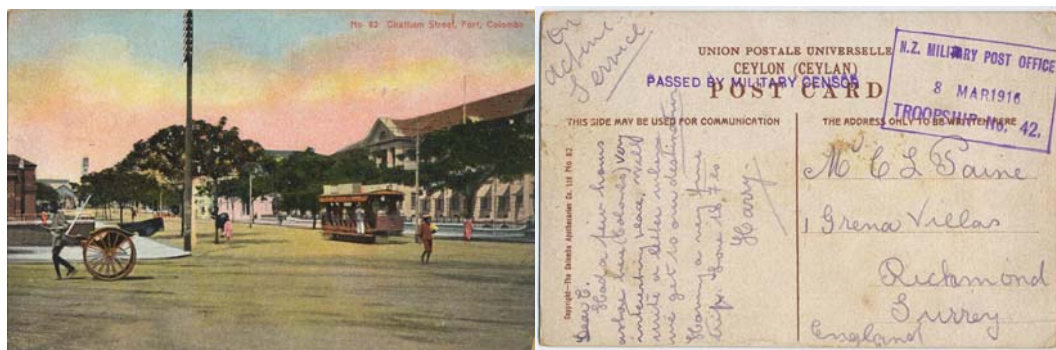 No 82 Chatham Street, Fort, Colombo
On
active
Service
UNION POSTALE UNIVERSELLE
CEYLON (CEYLAN)
PASSED BY MILITARY CENSOR
POST CARD
N.Z. MILITARY POST OFFICE
8 MAR 1916
TROOPSHIP No. 42.
THIS SIDE MAY BE USED FOR COMMUNICATION
THE ADDRESS ONLY TO BE WRITTEN HERE
Copyright—The Colombo Apothecaries Co. Ltd No 82
Dear C.
Had a few hours
ashore here (Colombo) very
interesting place, will
write a letter when
we get to our destination
Having a very fine
trip.
Harry
C L Paine
1 Grena Villas
Richmond
Surrey
England